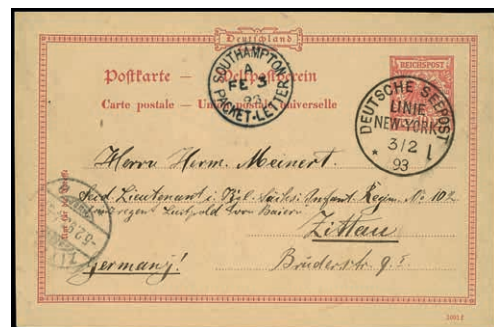 Deutschland
Postkarte — Weltpostverein
Carte postale — Union postale universelle
REICHSPOST
SOUTHAMPTON
A
FE 3
93
PACKET-LETTER
DEUTSCHE SEEPOST
LINIE
NEW-YORK
3/2
93
* I
Herrn Herm. Meinert.
Lieutenant i. Kgl. Sächs. Infant. Regim. No 102
Prinzregent Luitpold von Baiern
Zittau
Germany!
Brüderstr. 9. I.